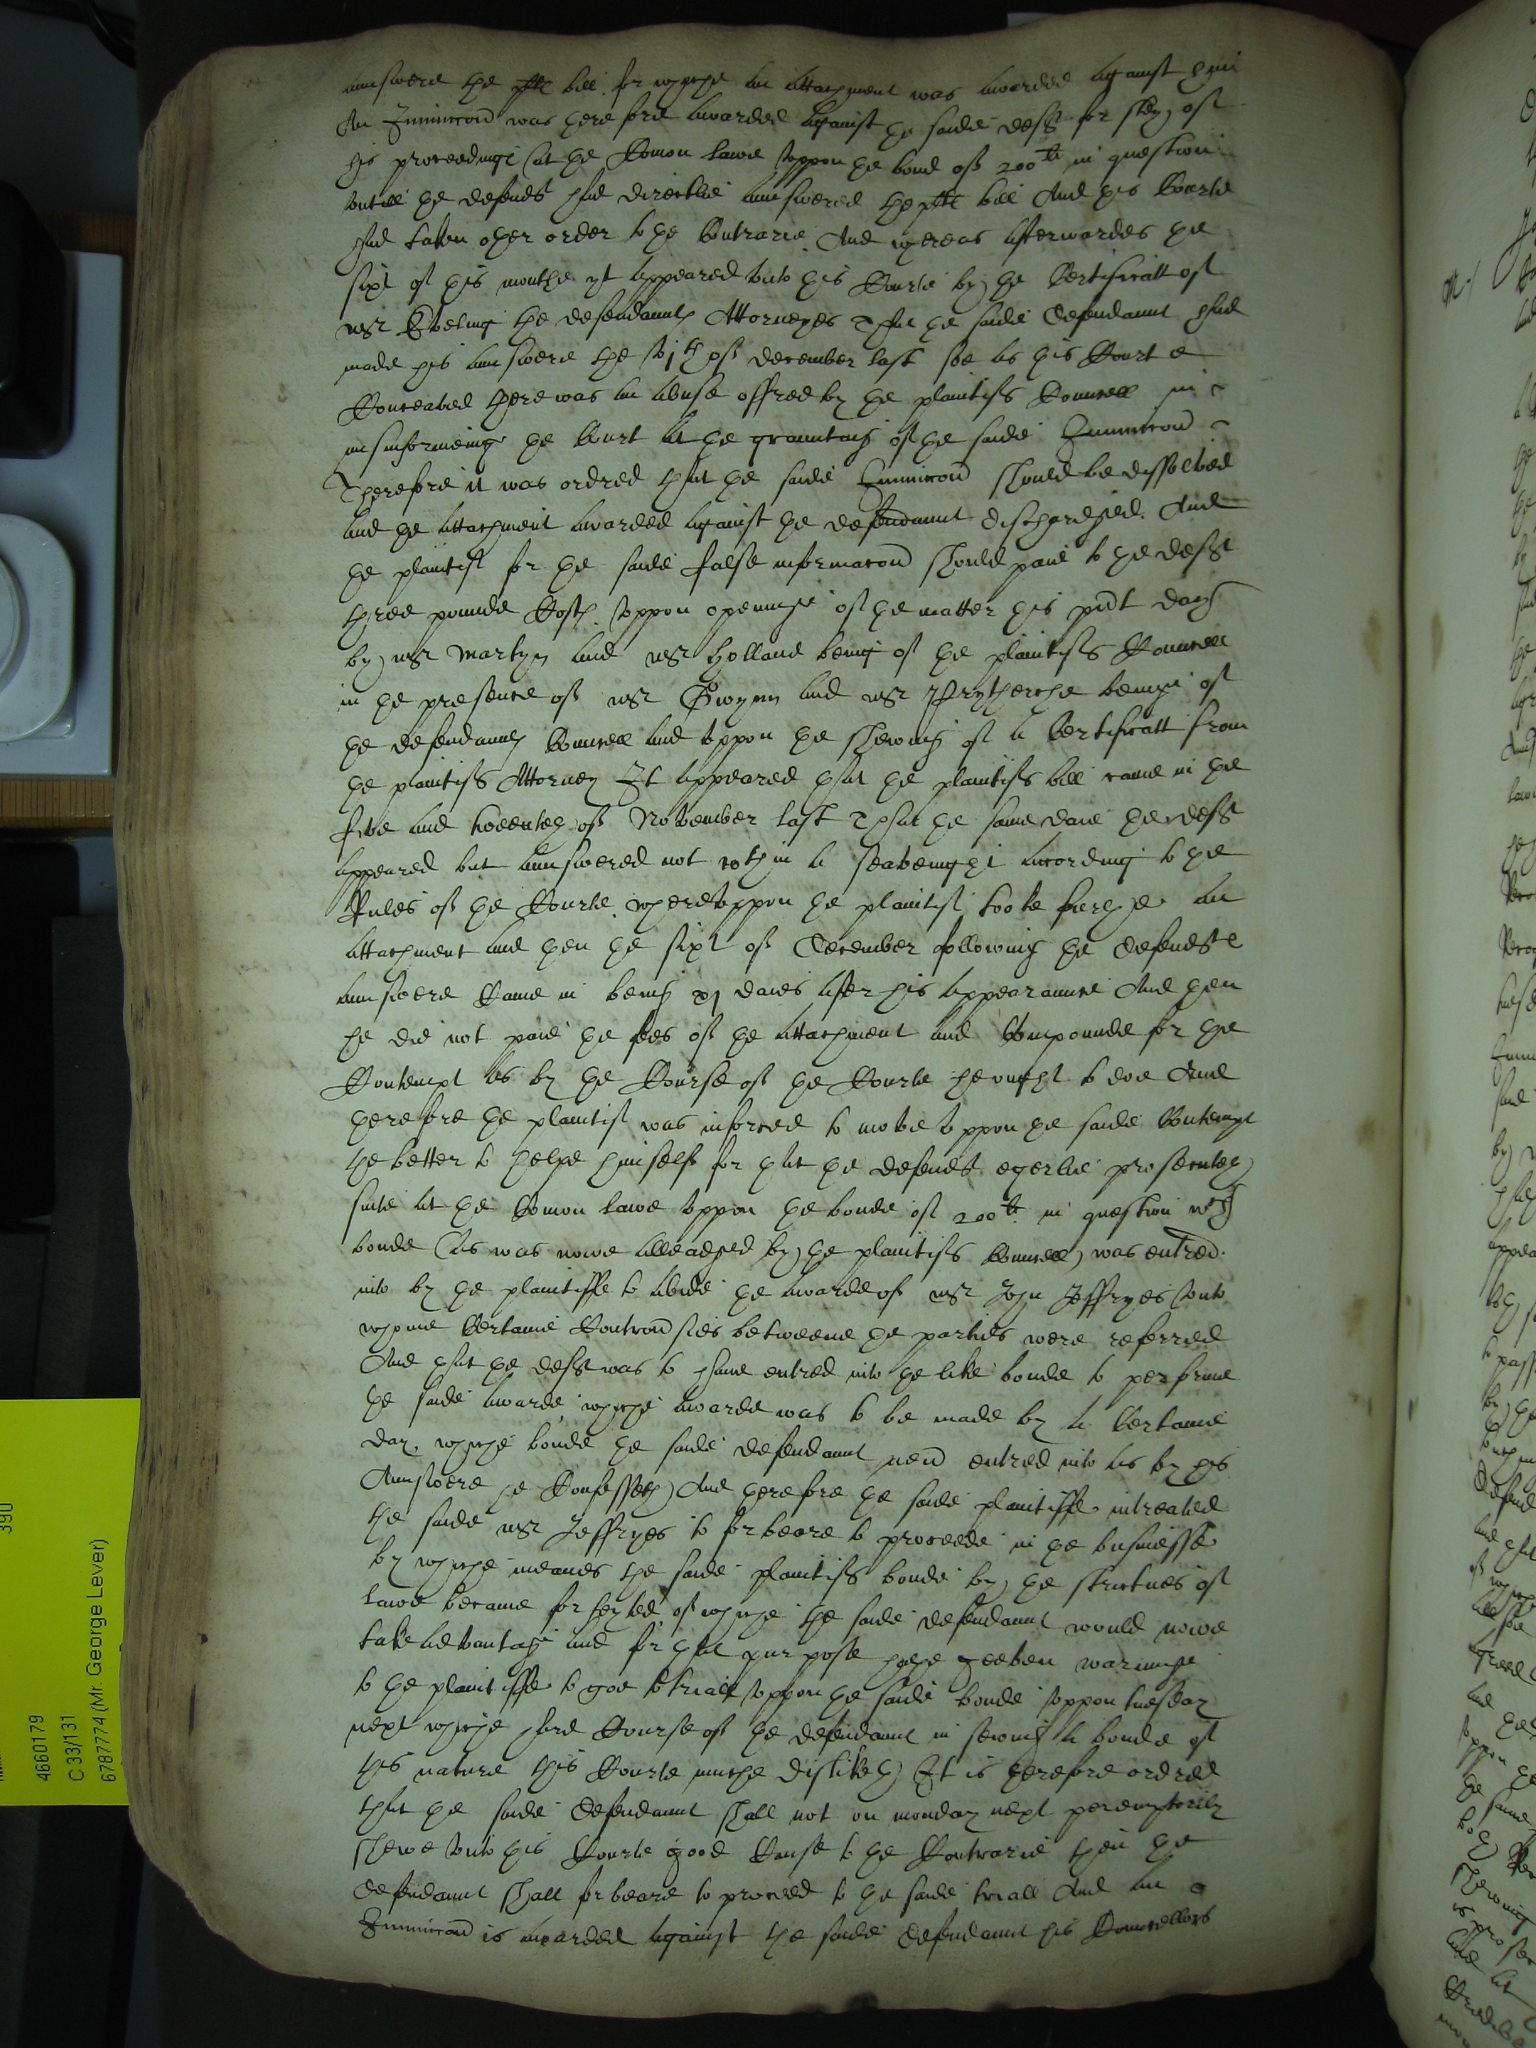 aunswere the pltes bill for whiche an attachment was awarded against him
An Iniunccon was therefore awarded against the saide deft for stey of
his proceedinge at the Comon Lawe uppon the bond of 200li in question
untill the defendt had directlie aunswered the pltes bill And this Courte
had taken other order to the Contrarie And whereas afterwardes the
sixt of this monthe yt appeared unto this Courte by the Certificatt of
mr Eveling the defendauntes Attorneyes That the saide Defendaunt had
made his aunswere the vjth of December last soe as this Court
Conceaved there was an abuse offred by the plaintifs Councell in
misinformeinge the Court at the grauntinge of the saide Iniunccon
Therefore it was ordred that the saide Iniunccon should be dissolved
and the attachment awarded against the defendaunt dischardged. And
the plaintif for the saide false informacon should paie to the deft
three pounde Costes. uppon openinge of the matter this pnt daye
by mr Martyn and mr Holland being of the plaintifs Councell
in the presence of mr Gwynn and mr Prytherche beinge of
the defendauntes Councell and uppon the shewing of a Certificatt from
the plaintifs Attorney It appeared that the plaintifs bill came in the
five and twentey of November last That the same daie the deft
appeared but aunswered not wthin a seavenight according to the
Rules of the Courte whereuppon the plaintif tooke furthe an
attachment and then the sixt of December following the defendtes
aunswere Came in being xj daies after his appearaunce And then
he did not paie the fees of the attachment and Compounde for the
Contempt as by the Course of the Courte he ought to doe And
therefore the plaintif was inforced to move uppon the saide Contempt
the better to helpe himself for that the defendt egerlie prosecuteth
suite at the Comon Lawe uppon the bonde of 200li in question wch
bonde (as was nowe alleadged by the plaintifs Councell) was entred
into by the plaintiffe to abide the awarde of mr John Jeffryes unto
whome Certaine Controuersies betweene the parties were referred
And that the deft was to have entred into the like bonde to performe
the saide awarde whiche awarde was to be made by a Certaine
day, whiche bonde the saide defendaunt neuer entred into as by his
Aunswere he Confesseth) And therefore the saide plaintiffe intreated
the saide mr Jeffryes to forbeare to proceede in the businesse
by whiche meanes the saide plaintifs bonde by the strictnes of
Lawe became forfeyted of whiche the saide defendaunt would nowe
take advantage and for that purpose hathe geeven warninge
to the plaintiffe to goe to triall uppon the saide bonde uppon tuesday
next whiche hard Course of the defendaunt in sewing a bonde of
this nature this Courte muche disliketh It is therefore ordred
that the saide Defendaunt shall not on monday next peremptorily
shewe unto this Courte good Cause to the Contrarie then the
defendaunt shall forbeare to proceed to the saide triall And an
Iniunccon is awarded against the saide defendaunt his Councellors
390
4660179
C 33/131
6787774 (Mr. George Lever)